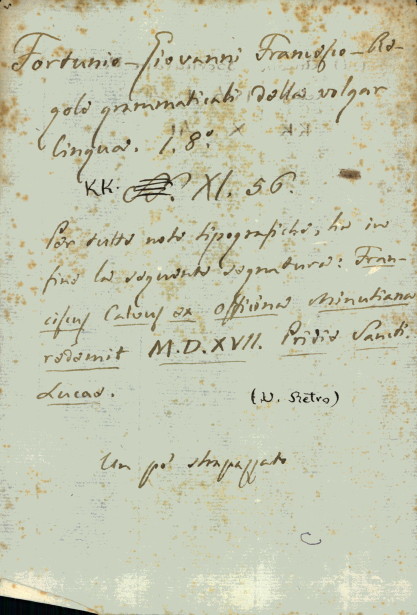 Fortunio - Giovanni Francesco - Re-
gole grammaticali della volgar
lingua. 1. 8.°
KK. XI. 56.
Per tutte note tipografiche, ha in
fine la seguente segnatura: Fran-
ciscus Calvus ex officina Minutiana
redemit M.D.XVII. Pridie Sancti
Lucae.
(V. Retro)
Un pò strapazzato